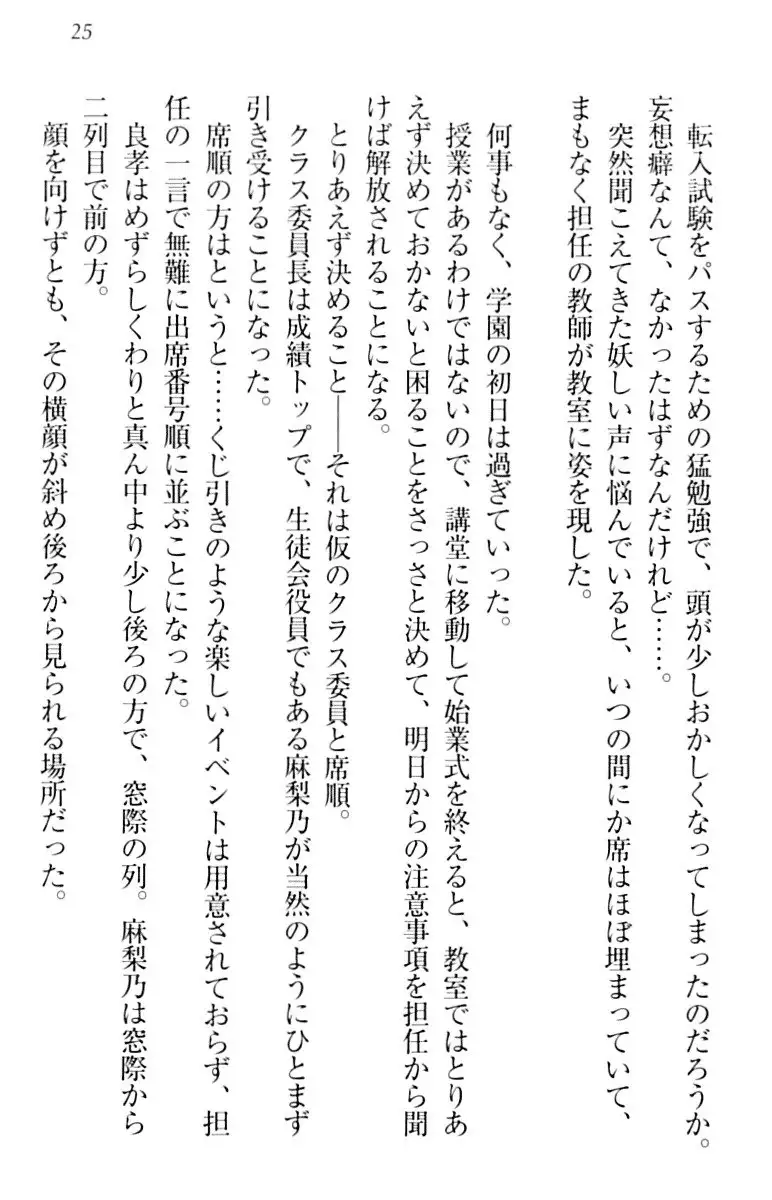 25
転入試験をパスするための猛勉強で、頭が少しおかしくなってしまったのだろうか。
妄想癖なんて、なかったはずなんだけれど……。
突然聞こえてきた妖しい声に悩んでいると、いつの間にか席はほぼ埋まっていて、
まもなく担任の教師が教室に姿を現した。
何事もなく、学園の初日は過ぎていった。
授業があるわけではないので、講堂に移動して始業式を終えると、教室ではとりあ
えず決めておかないと困ることをさっさと決めて、明日からの注意事項を担任から聞
けば解放されることになる。
とりあえず決めること――それは仮のクラス委員と席順。
クラス委員長は成績トップで、生徒会役員でもある麻梨乃が当然のようにひとまず
引き受けることになった。
席順の方はというと……くじ引きのような楽しいイベントは用意されておらず、担
任の一言で無難に出席番号順に並ぶことになった。
良孝はめずらしくわりと真ん中より少し後ろの方で、窓際の列。麻梨乃は窓際から
二列目で前の方。
顔を向けずとも、その横顔が斜め後ろから見られる場所だった。